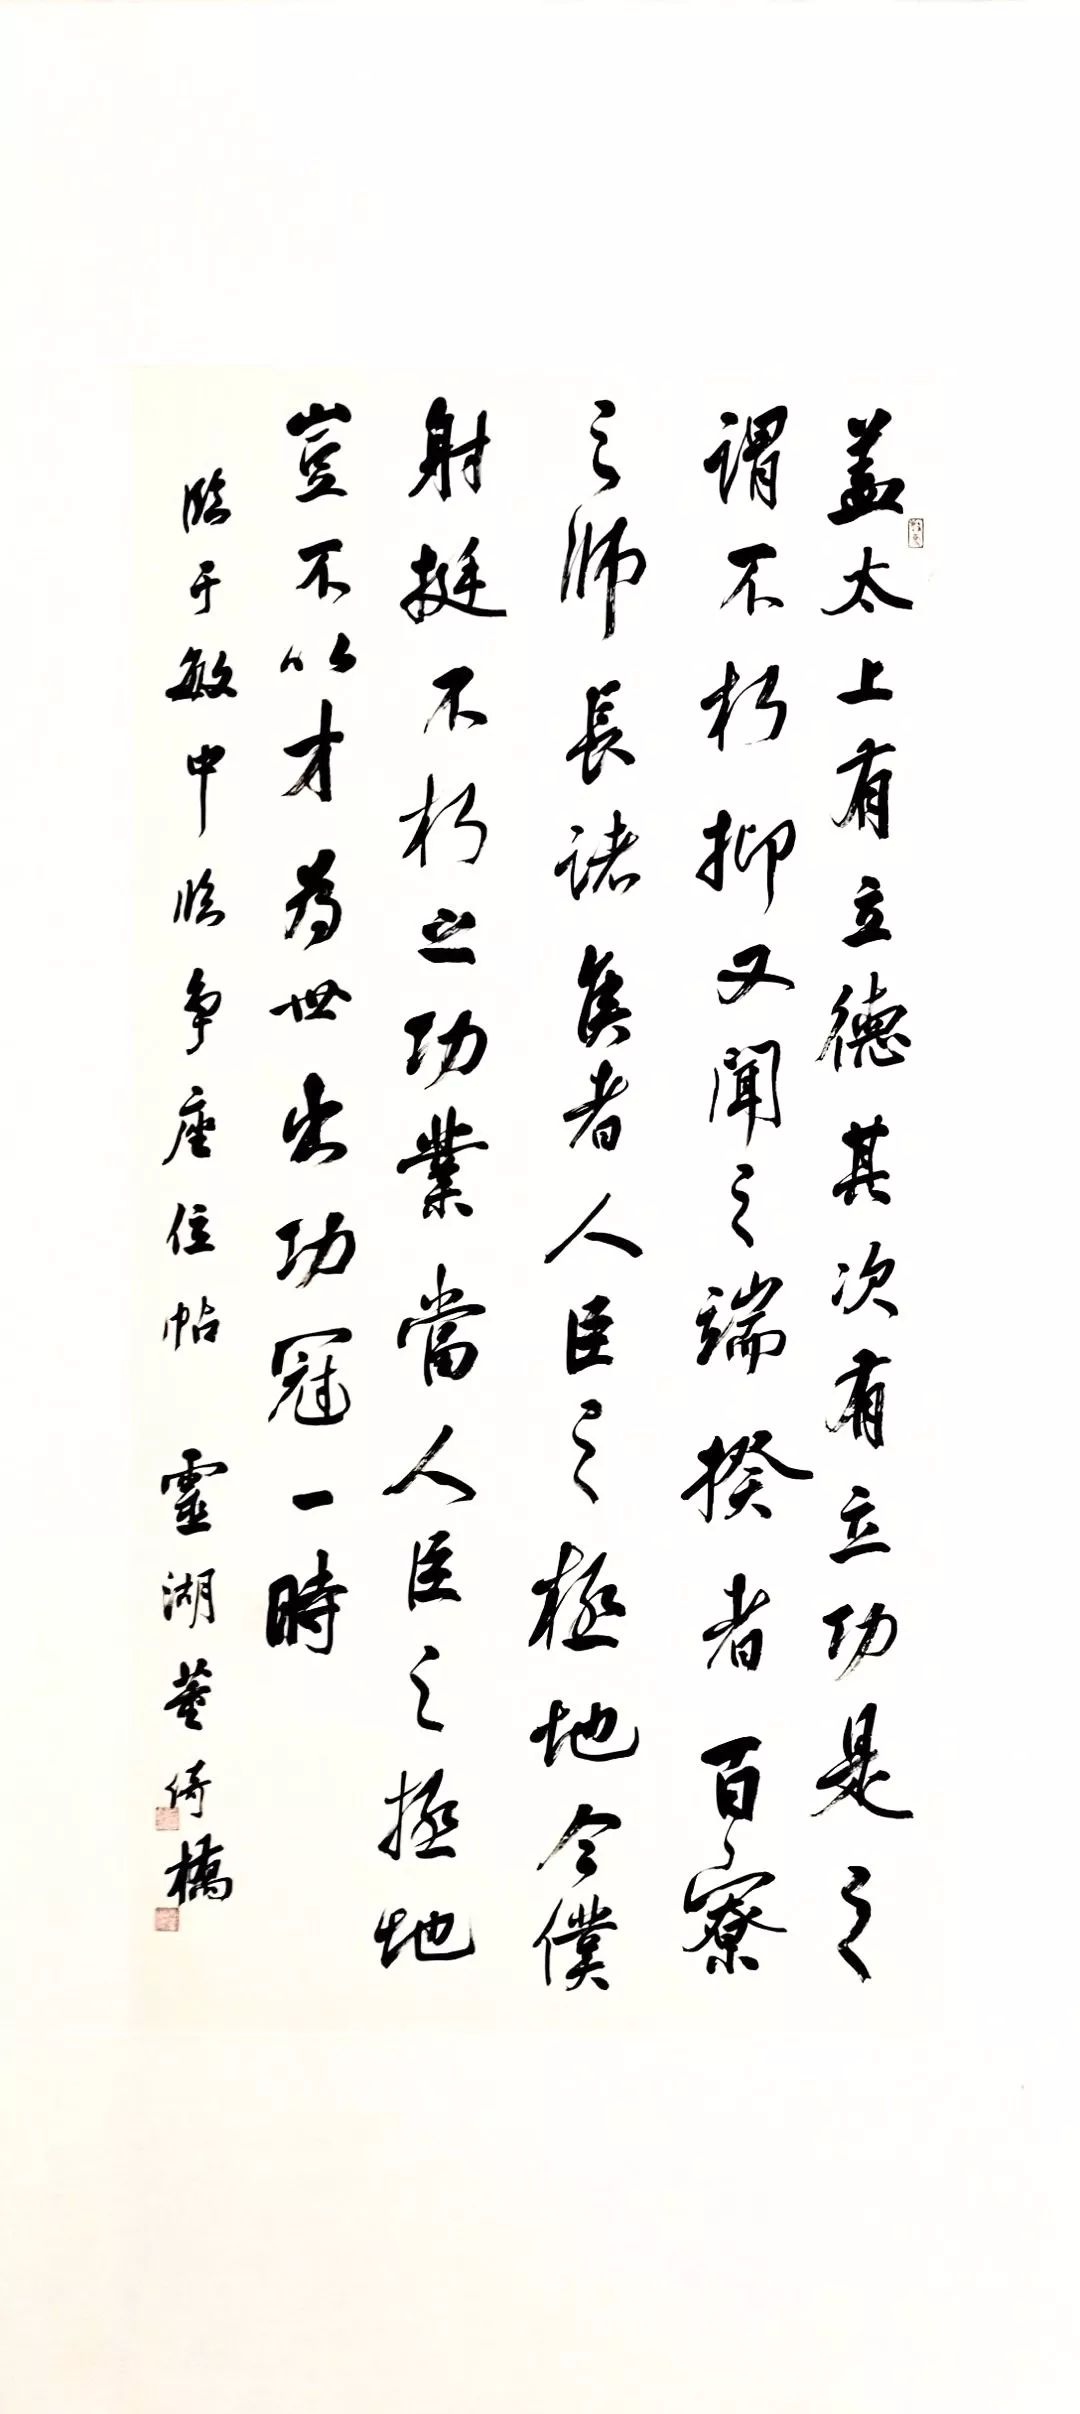 蓋太上有立德其次有立功是之
謂不朽抑又聞之端揆者百寮
之師長諸矦者人臣之極地今僕
射挺不朽之功業當人臣之極地
豈不以才為世出功冠一時
臨于敏中臨争座位帖 靈湖董倚橋